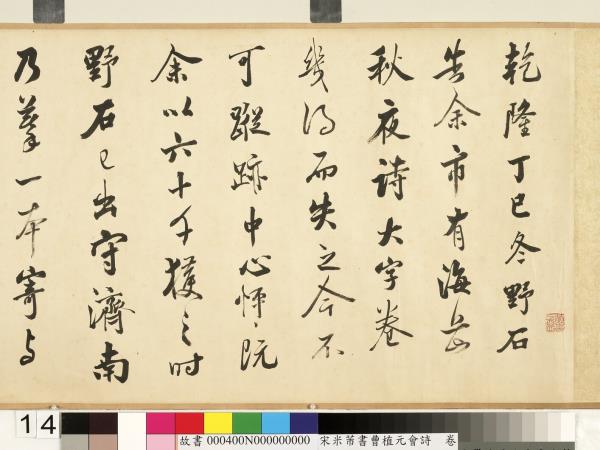 乾隆丁巳冬野石
告余市有海岳
秋夜詩大字卷
幾得而失之今不
可蹤跡中心怦怦既
余以六十千獲之時
野石已出守濟南
乃摹一本寄与
14
故書 000400N000000000 宋米芾書曹植元會詩 卷